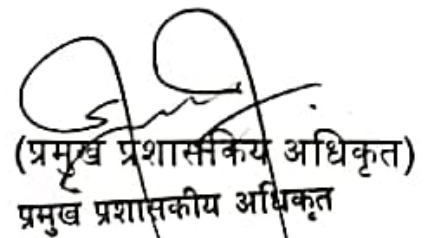 (प्रमुख प्रशासकिय अधिकृत)
प्रमुख प्रशासकीय अधिकृत